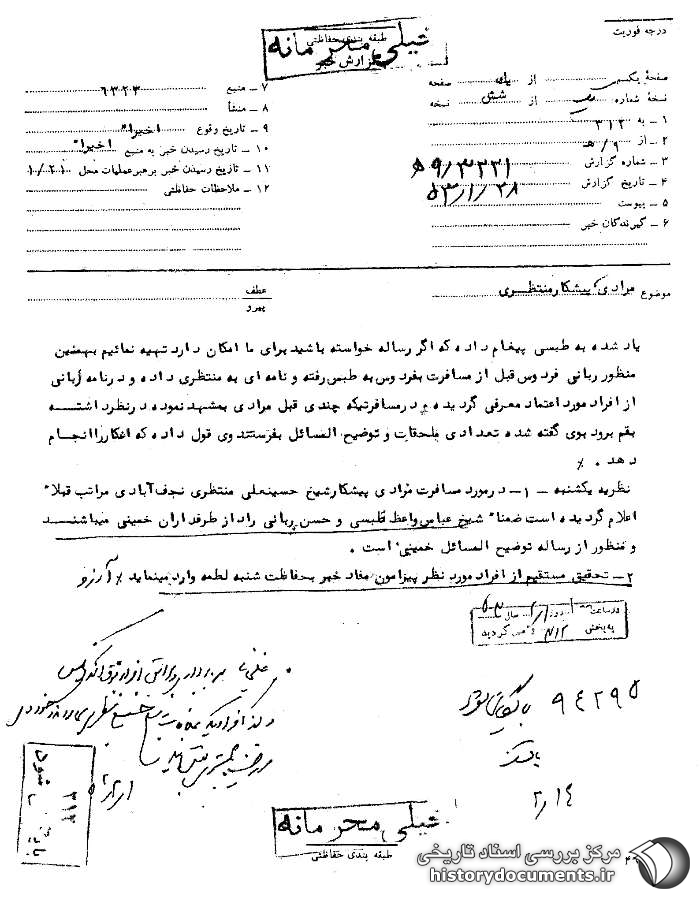 درجه فوریت
خیلی محرمانه
طبقه بندی حفاظتی
گزارش خبر
صفحهٔ یکم از یک صفحه
نسخهٔ شماره از شش نسخه
۱ – به ۳۱۲
۲ – از ۹/ هـ
۳ – شماره گزارش ۹/۳۲۲۱ هـ
۴ – تاریخ گزارش ۵۳/۱/۲۸
۵ – پیوست
۶ – گیرندگان خبر
۷ – منبع ۶۳۲۳
۸ – منشأ
۹ – تاریخ وقوع اخیراً
۱۰ – تاریخ رسیدن خبر به منبع اخیراً
۱۱ – تاریخ رسیدن خبر برهبر عملیات محل ۱/۲۱
۱۲ – ملاحظات حفاظتی
موضوع مرادی پیشکار منتظری
عطف
پیرو
یاد شده به طبسی پیغام داده که اگر رساله خواسته باشید برای ما امکان دارد تهیه نمائیم بهمین
منظور ربانی فردوس قبل از مسافرت بفردوس به طبس رفته و نامه ای به منتظری داده و در نامه ربانی
از افراد مورد اعتماد معرفی گردیده و در مسافرتیکه چندی قبل مرادی بمشهد نموده در نظر داشته
بقم برود بوی گفته شده تعدادی ملحقات و توضیح المسائل بفرستد وی قول داده که اینکار را انجام
دهد . ٪
نظریه یکشنبه – ۱– در مورد مسافرت مرادی پیشکار شیخ حسینعلی منتظری نجف آبادی مراتب قبلاً
اعلام گردیده است ضمناً شیخ عباس واعظ طبسی و حسن ربانی راد از طرفداران خمینی میباشند
و منظور از رساله توضیح المسائل خمینی است .
۲– تحقیق مستقیم از افراد مورد نظر پیرامون مفاد خبر بحفاظت شنبه لطمه وارد مینماید ٪ آرزو
در ساعت روز سال
به بخش ۳۱۲ گردید
۹۴۲۹۵
بایگانی شود
۲/۱۴
۳۱۲
خیلی محرمانه
طبقه بندی حفاظتی
مرکز بررسی اسناد تاریخی
historydocuments.ir